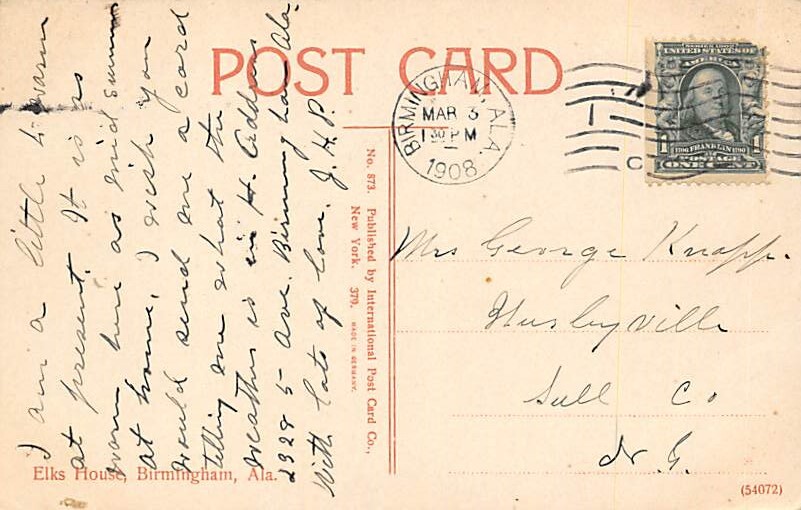 POST CARD
BIRMINGHAM, ALA.
MAR 3
1 30 PM
1908
SERIES 1902
UNITED STATES OF
AMERICA
1706 FRANKLIN 1790
1 POSTAGE 1
ONE CENT
I am a little to warm
at present. It is as
warm here as mid summer
at home, I wish you
would send me a card
telling me what the
weather is in H. Address
2328 5 Ave. Birmingham Ala.
With lots of love. J. H. P.
No. 573. Published by International Post Card Co.,
New York. 379. MADE IN GERMANY.
Mrs George Knapp.
Hurleyville
Sull Co
N. Y.
Elks House, Birmingham, Ala.
(54072)